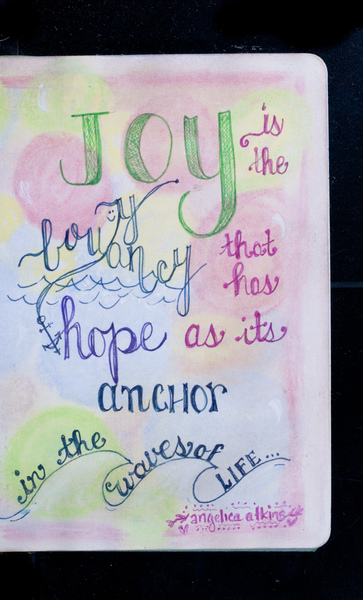 JOY is
the
bouyancy that
has
hope as its
anchor
in the waves of LIFE...
angelica atkins